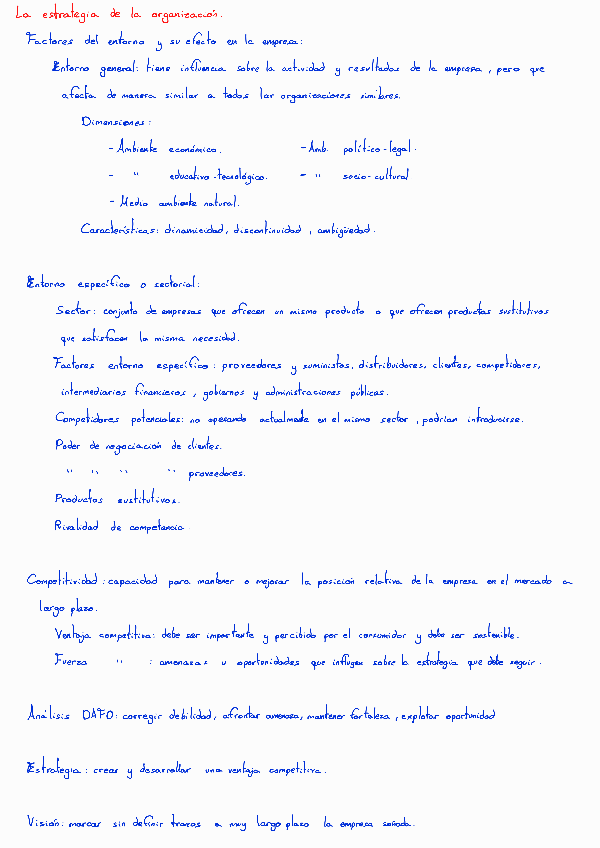 La estrategia de la organización.
Factores del entorno y su efecto en la empresa:
Entorno general: tiene influencia sobre la actividad y resultados de la empresa, pero que
afecta de manera similar a todas las organizaciones similares.
Dimensiones:
- Ambiente económico. - Amb. político-legal.
- " educativo-tecnológico. - " socio-cultural
- Medio ambiente natural.
Características: dinamicidad, discontinuidad, ambigüedad.
Entorno específico o sectorial:
Sector: conjunto de empresas que ofrecen un mismo producto o que ofrecen productos sustitutivos
que satisfacen la misma necesidad.
Factores entorno específico: proveedores y suministos, distribuidores, clientes, competidores,
intermediarios financieros, gobiernos y administraciones públicas.
Competidores potenciales: no operando actualmente en el mismo sector, podrían introducirse.
Poder de negociación de clientes.
" " " " proveedores.
Productos sustitutivos.
Rivalidad de competencia
Competitividad: capacidad para mantener o mejorar la posición relativa de la empresa en el mercado a
largo plazo.
Ventaja competitiva: debe ser importante y percibido por el consumidor y debe ser sostenible.
Fuerza " : amenazas u oportunidades que influyen sobre la estrategia que debe seguir.
Análisis DAFO: corregir debilidad, afrontar amenaza, mantener fortaleza, explotar oportunidad
Estrategia: crear y desarrollar una ventaja competitiva.
Visión: marcar sin definir trazos a muy largo plazo la empresa soñada.